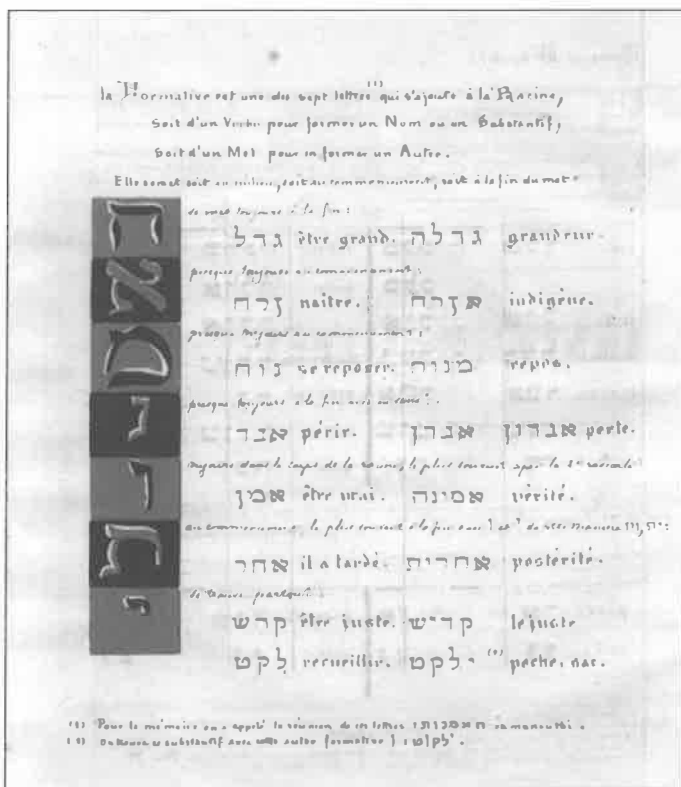 la Formative est une des sept lettres (1) qui s'ajoute à la Racine,
Soit d'un Verbe pour former un Nom ou un Substantif,
Soit d'un Mot pour en former un Autre.
Elle se met soit au milieu, soit au commencement, soit à la fin du mot
ה se met toujours à la fin :
גדל être grand. גדלה grandeur.
א presque toujours au commencement :
זרח naître. אזרח indigène.
מ presque toujours au commencement :
נוח se reposer. מנוח repos.
נ presque toujours à la fin
אבד périr. אבדן אבדון perte.
ו toujours dans le corps de la racine, le plus souvent après la 2e radicale
אמן être vrai. אמונה vérité.
ת au commencement, le plus souvent à la fin avec ו et י de cette manière ות, ית :
אחר il a tardé. אחרית postérité.
י se trouve partout :
קדש être juste. קדיש le juste
לקט recueillir. ילקט (2) poche, sac.
(1) Pour la mémoire on a appelé la réunion de ces lettres
(2) On trouve ce substantif avec cette autre formative ו ילקוט.